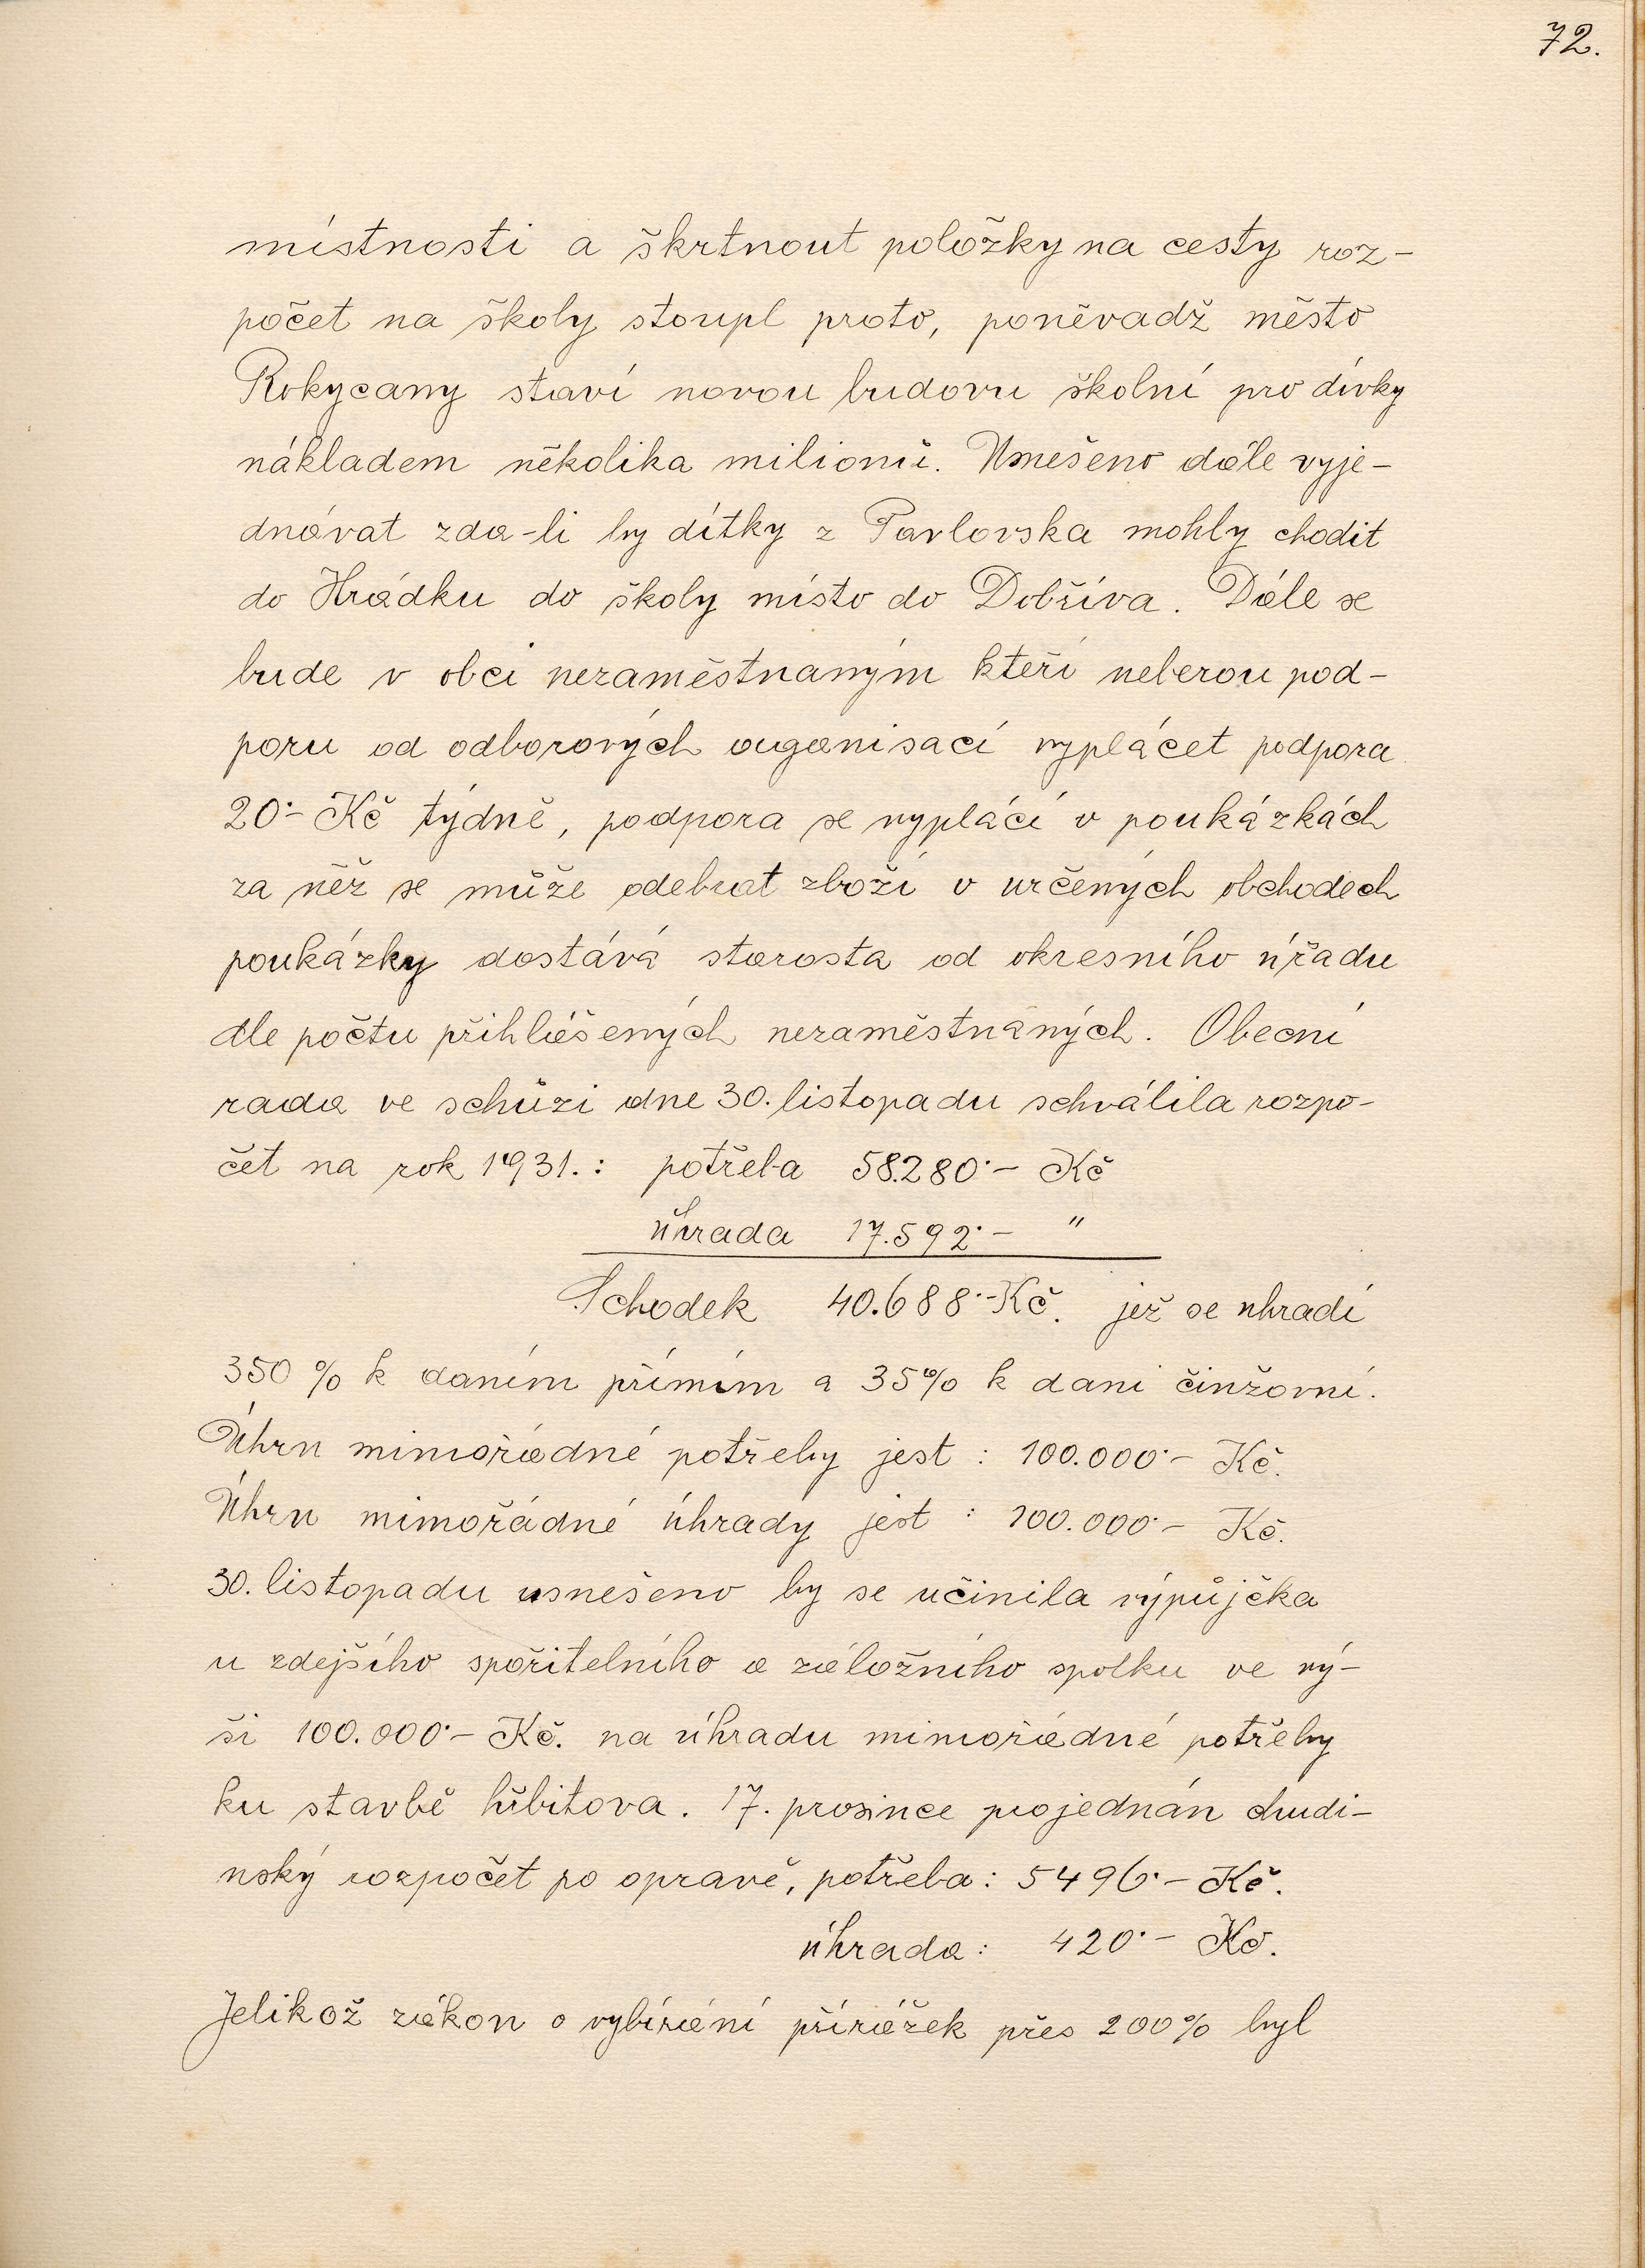 72.
místnosti a škrtnout položky na cesty roz-
počet na školy stoupl proto, poněvadž město
Rokycany staví novou budovu školní pro dívky
nákladem několika milionů. Usnešeno dále vyje-
dnávat zda-li by dítky z Pavlovska mohly chodit
do Hrádku do školy místo do Dobříva. Dále se
bude v obci nezaměstnaným kteří neberou pod-
poru od odborových organisací vyplácet podpora
20·- Kč týdně, podpora se vyplácí v poukázkách
za něž se může odebrat zboží v určených obchodech
poukázky dostává starosta od okresního úřadu
dle počtu přihlášených nezaměstnaných. Obecní
rada ve schůzi dne 30. listopadu schválila rozpo-
čet na rok 1931. : potřeba 58.280·- Kč
úhrada 17.592·- "
Schodek 40.688·- Kč. jež se uhradí
350 % k daním přímím a 35% k dani činžovní.
Úhrn mimořádné potřeby jest : 100.000·- Kč.
Úhrn mimořádné úhrady jest : 100.000·- Kč.
30. listopadu usnešeno by se učinila výpůjčka
u zdejšího spořitelního a záložního spolku ve vý-
ši 100.000·- Kč. na úhradu mimořádné potřeby
ku stavbě hřbitova. 17. prosince projednán chudi-
nský rozpočet po opravě, potřeba: 5496·- Kč.
úhrada: 420·- Kč.
Jelikož zákon o vybírání přirážek přes 200% byl